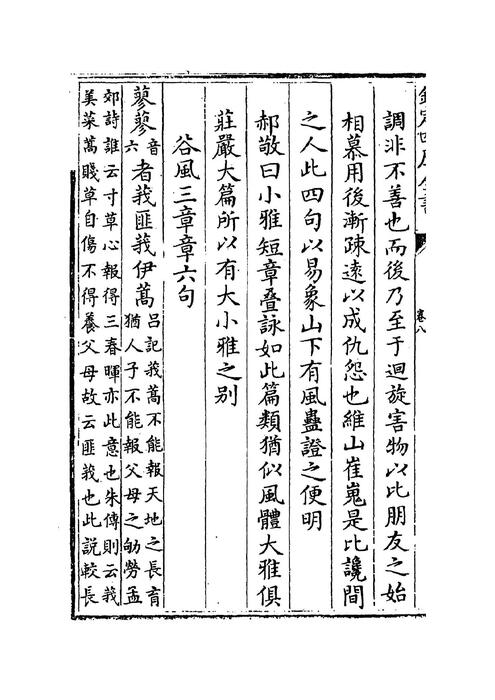 欽定四庫全書
卷八
調非不善也而後乃至于迴旋害物以比朋友之始
相慕用後漸疎遠以成仇怨也維山崔嵬是比讒間
之人此四句以易象山下有風蠱證之便明
郝敬曰小雅短章疊詠如此篇類猶似風體大雅俱
莊嚴大篇所以有大小雅之别
谷風三章章六句
蓼蓼音六者莪匪莪伊蒿吕記莪蒿不能報天地之長育
猶人子不能報父母之劬勞孟
郊詩誰云寸草心報得三春暉亦此意也朱傳則云莪
美菜蒿賤草自傷不得養父母故云匪莪也此説較長